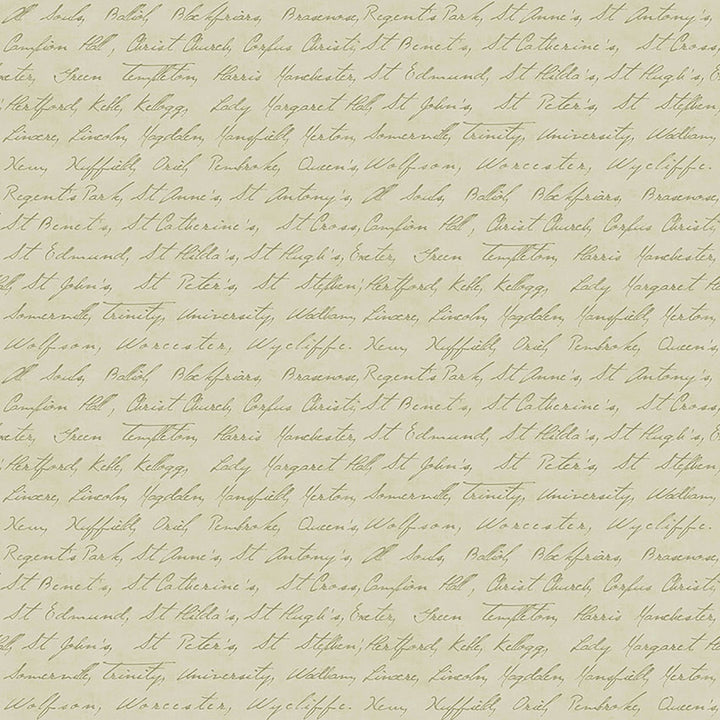 All Souls, Balliol, Blackfriars, Brasenose, Regent's Park, St Anne's, St Antony's,
Campion Hall, Christ Church, Corpus Christi, St Benet's, St Catherine's, St Cross,
Exeter, Green Templeton, Harris Manchester, St Edmund, St Hilda's, St Hugh's, E
Hertford, Keble, Kellogg, Lady Margaret Hall, St John's, St Peter's, St Stephen
Linacre, Lincoln, Magdalen, Mansfield, Merton, Somerville, Trinity, University, Wadham,
New, Nuffield, Oriel, Pembroke, Queen's, Wolfson, Worcester, Wycliffe.
Regent's Park, St Anne's, St Antony's, All Souls, Balliol, Blackfriars, Brasenose,
St Benet's, St Catherine's, St Cross, Campion Hall, Christ Church, Corpus Christi,
St Edmund, St Hilda's, St Hugh's, Exeter, Green Templeton, Harris Manchester,
Hall, St John's, St Peter's, St Stephen; Hertford, Keble, Kellogg, Lady Margaret Ha
Somerville, Trinity, University, Wadham, Linacre, Lincoln, Magdalen, Mansfield, Merton,
Wolfson, Worcester, Wycliffe. New, Nuffield, Oriel, Pembroke, Queen's,
All Souls, Balliol, Blackfriars, Brasenose, Regent's Park, St Anne's, St Antony's,
Campion Hall, Christ Church, Corpus Christi, St Benet's, St Catherine's, St Cross,
Exeter, Green Templeton, Harris Manchester, St Edmund, St Hilda's, St Hugh's, E
Hertford, Keble, Kellogg, Lady Margaret Hall, St John's, St Peter's, St Stephen
Linacre, Lincoln, Magdalen, Mansfield, Merton, Somerville, Trinity, University, Wadham,
New, Nuffield, Oriel, Pembroke, Queen's, Wolfson, Worcester, Wycliffe.
Regent's Park, St Anne's, St Antony's, All Souls, Balliol, Blackfriars, Brasenose,
St Benet's, St Catherine's, St Cross, Campion Hall, Christ Church, Corpus Christi,
St Edmund, St Hilda's, St Hugh's, Exeter, Green Templeton, Harris Manchester,
Hall, St John's, St Peter's, St Stephen; Hertford, Keble, Kellogg, Lady Margaret Ha
Somerville, Trinity, University, Wadham, Linacre, Lincoln, Magdalen, Mansfield, Merton,
Wolfson, Worcester, Wycliffe. New, Nuffield, Oriel, Pembroke, Queen's,